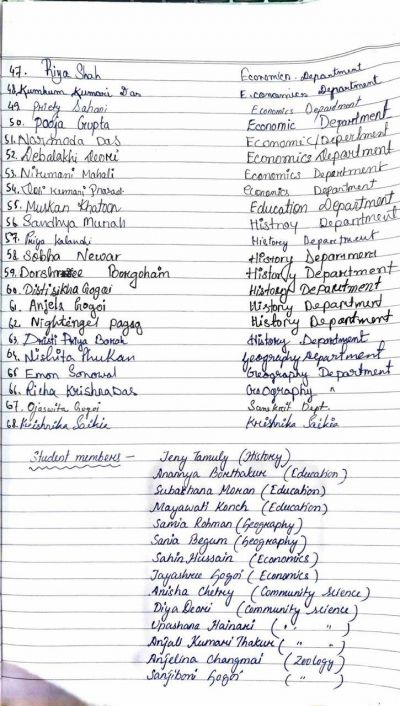 47. Riya Shah Economics. Department
48. Kumkum Kumari Das Economics Department
49. Priety Sahani Economics Department
50. Pooja Gupta Economic Department
51. Narmoda Das Economic Department
52. Debalakhi Deori Economics Department
53. Nitumani Mahali Economics Department
54. Kumari Prasad Economics Department
55. Muskan Khatoon Education Department
56. Sandhya Munah Histroy Department
57. Priya Kalandi History Department
58 Sobha Newar History Department
59. Borgohain History Department
60. Distisikha Gogoi History Department
61. Anjela Gogoi History Department
62. Nightengel History Department
63. Dristi Priya Borah History Department
64. Nishita Phukan Geography Department
65 Emon Sonowal Geography Department
66. Richa Krishna Das Geography "
67. Ojaswita Gogoi Sanskrit Dept.
68. Krishnika Saikia Krishnika Saikia
Student members - Jeny Tamuly (History)
Anannya Borthakur (Education)
Subarhana Moran (Education)
Mayawati Konch (Education)
Samia Rohman (Geography)
Sania Begum (Geography)
Sahin Hussain (Economics)
Jayashree Gogoi (Economics)
Anisha Chetry (Community Science)
Diya Deori (Community science)
Upashana Hainari ( " " )
Anjali Kumari Thakur ( " " )
Anjelina Changmai (Zoology)
Sanjiboni Gogoi ( " )